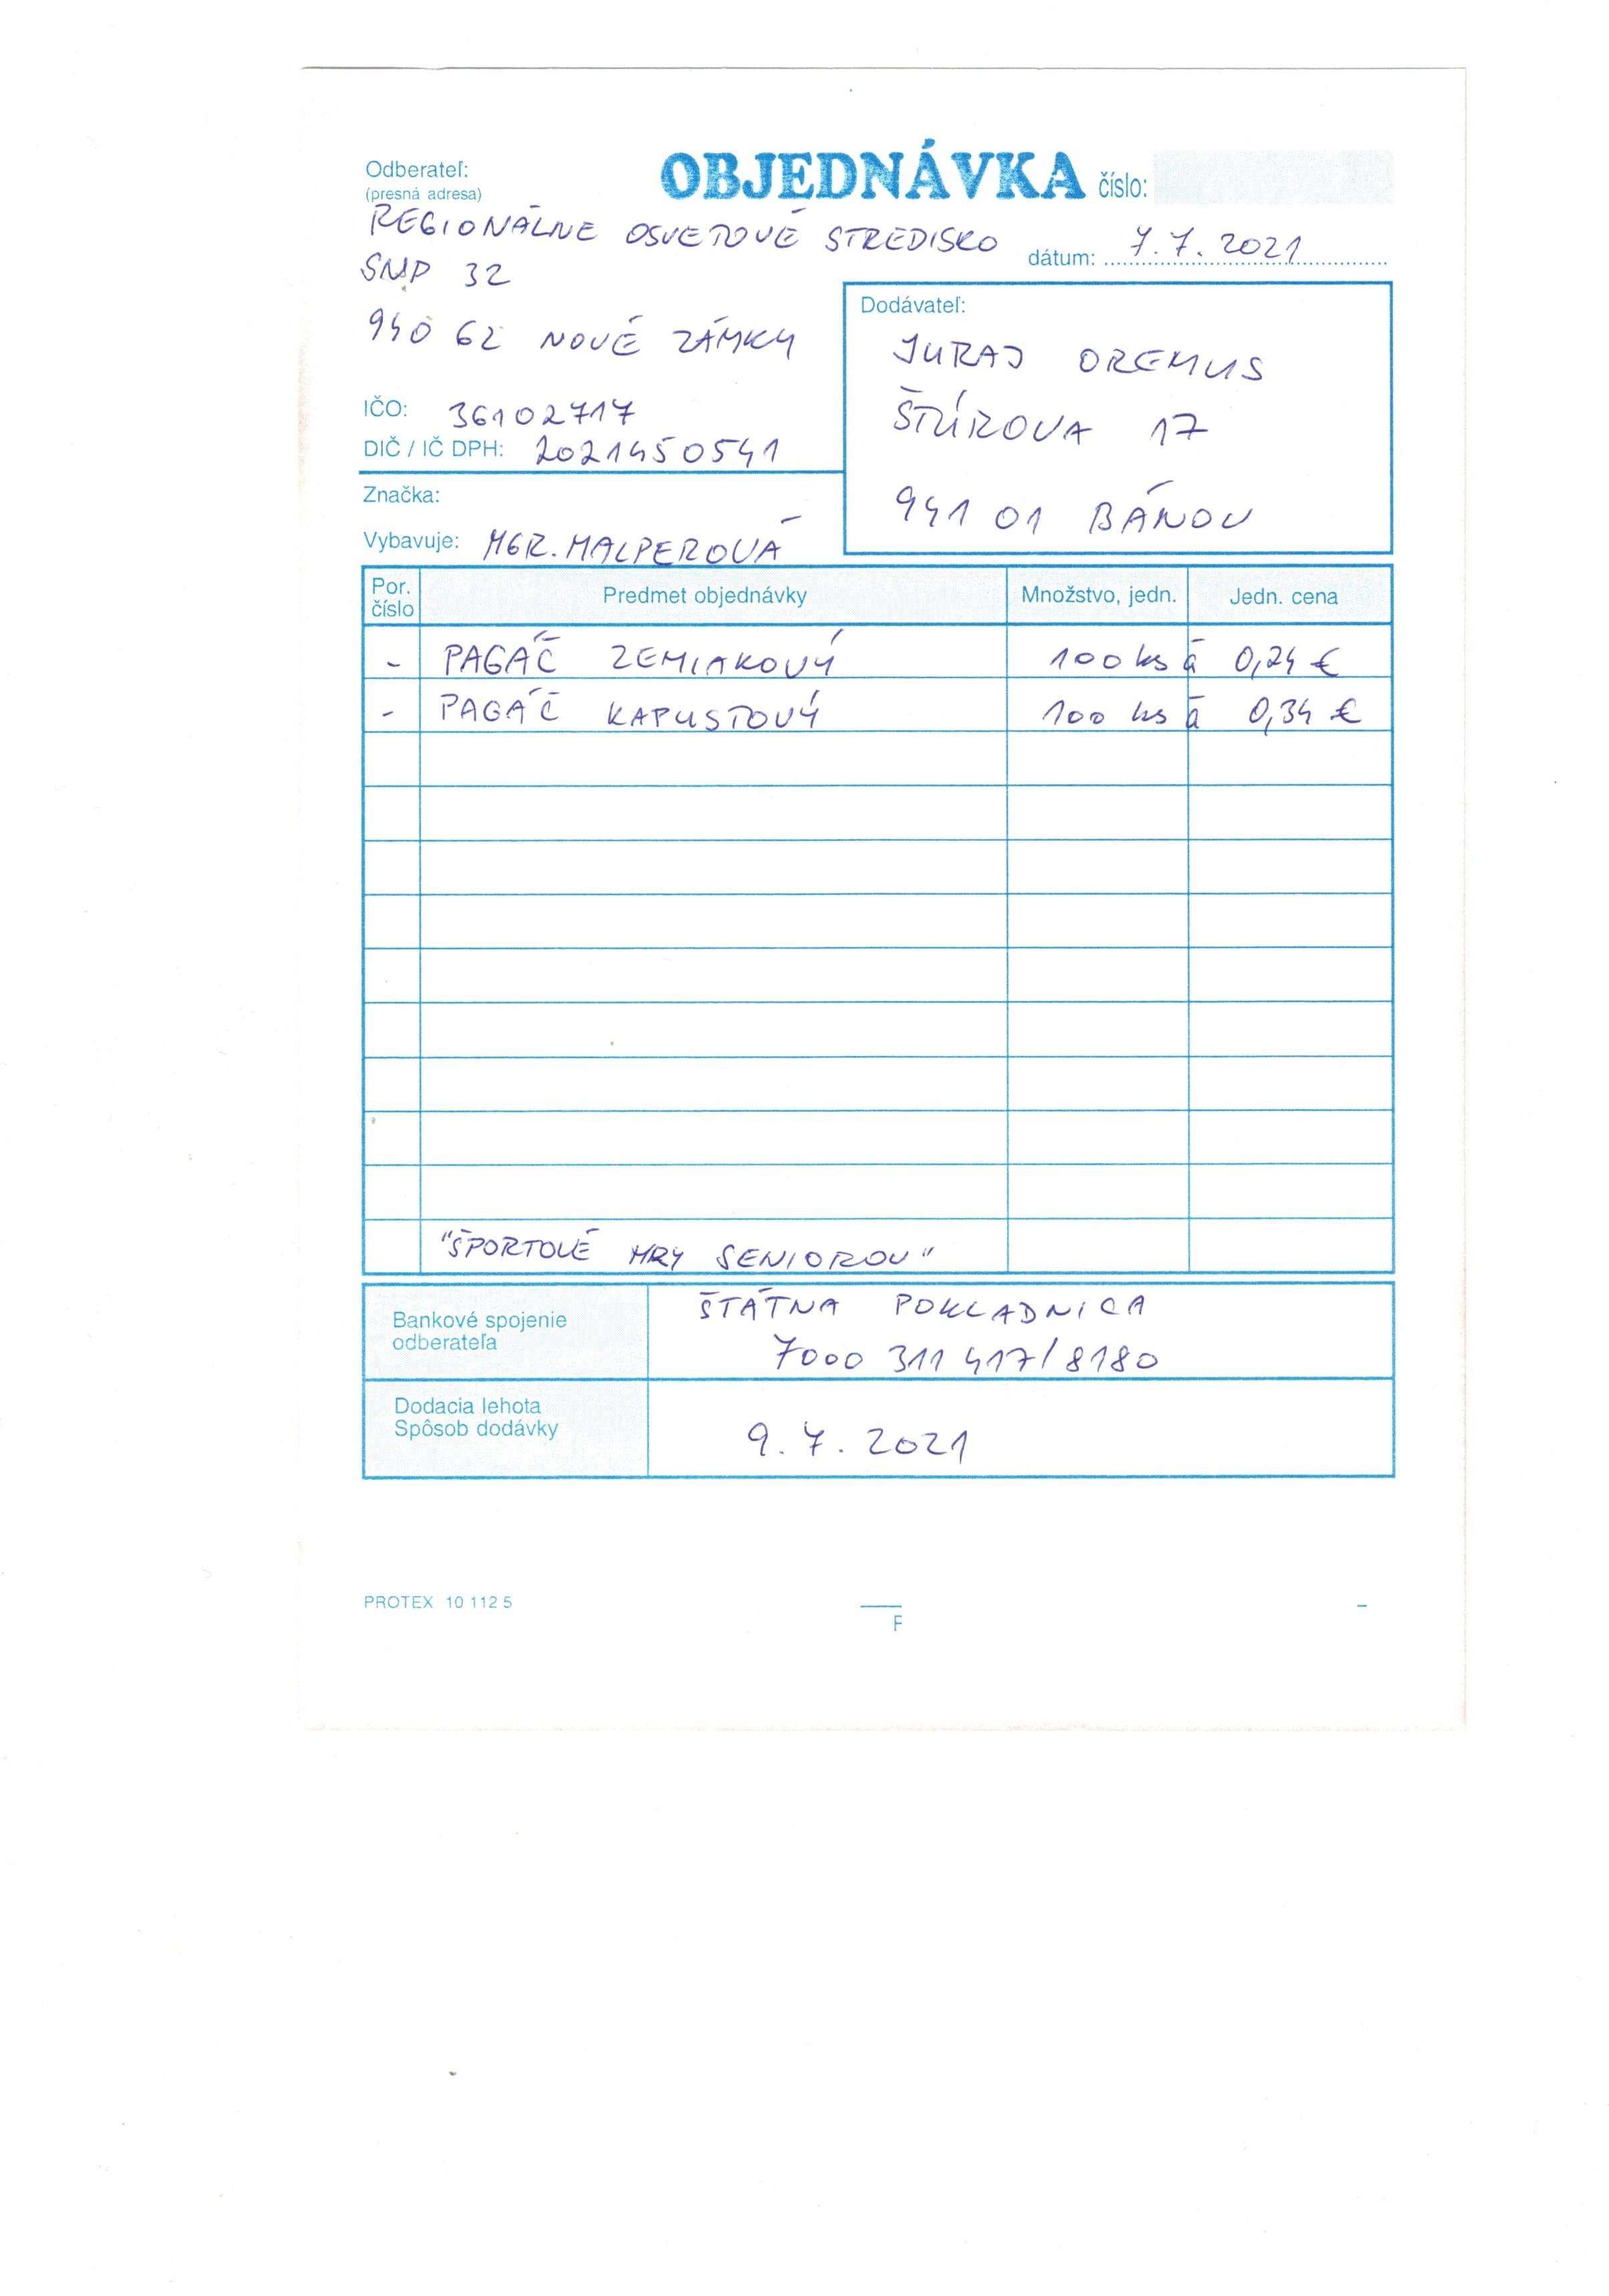 Odberateľ:
(presná adresa)
OBJEDNÁVKA číslo:
REGIONÁLNE OSVETOVÉ STREDISKO
dátum: 7.7.2021
SNP 32
940 62 NOVÉ ZÁMKY
IČO: 36102717
DIČ / IČ DPH: 2021450541
Značka:
Vybavuje: MGR. MALPEROVÁ
Dodávateľ:
JURAJ OREMUS
ŠTÚROVA 17
941 01 BÁNOV
Por. číslo Predmet objednávky Množstvo, jedn. Jedn. cena
- PAGÁČ ZEMIAKOVÝ 100 ks á 0,24 €
- PAGÁČ KAPUSTOVÝ 100 ks á 0,34 €
"ŠPORTOVÉ HRY SENIOROV"
Bankové spojenie
odberateľa
ŠTÁTNA POKLADNICA
7000 311 417/8180
Dodacia lehota
Spôsob dodávky
9.7.2021
PROTEX 10 112 5
F